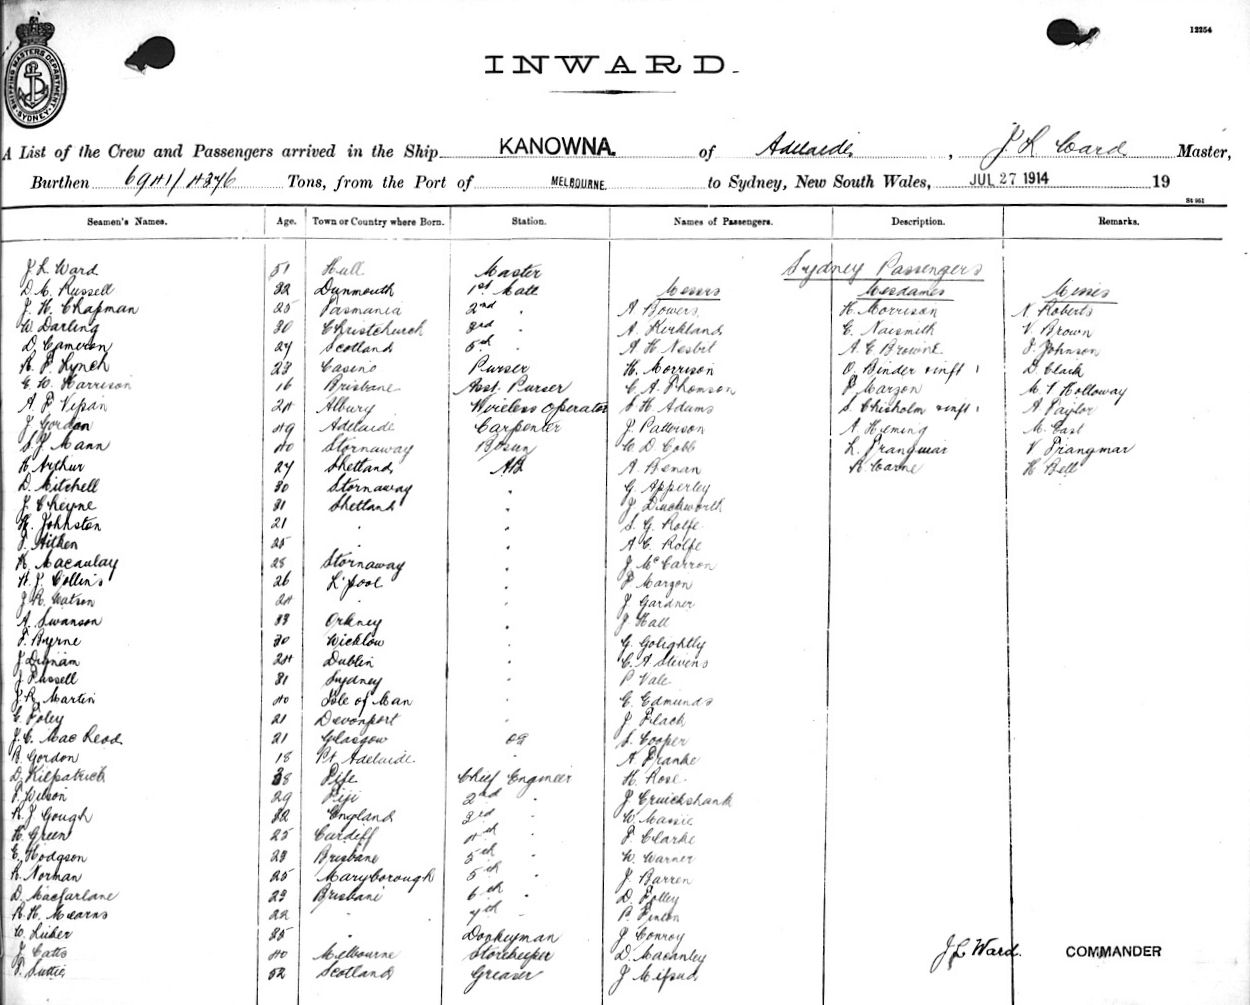 12254
SHIPPING MASTERS DEPARTMENT
SYDNEY
INWARD.
A List of the Crew and Passengers arrived in the Ship KANOWNA. of Adelaide, J L Ward Master,
Burthen 6941/4376 Tons, from the Port of MELBOURNE. to Sydney, New South Wales, JUL 27 1914 19
St 951
Seamen's Names. Age. Town or Country where Born. Station. Names of Passengers. Description. Remarks.
Sydney Passengers
J L Ward 51 Hull Master
D. C. Russell 32 Dunmouth 1st Mate Messrs Mesdames Misses
J. H. Chapman 25 Tasmania 2nd " A Bowers H. Morrison N. Roberts
W Darling 30 Christchurch 3rd " A. Kirkland E. Naismith V. Brown
D. Cameron 24 Scotland 5th " A H Nesbit A. E Browne J. Johnson
R. P. Lynch 23 Casino Purser H. Morrison O. Binder & inft 1 D. Clark
E. W. Harrison 16 Brisbane Asst. Purser C A Thomson P Marzon M. S Holloway
A P Vipan 24 Albury Wireless Operator S H Adams S. Chisholm & inft 1 A Taylor
J Gordon 49 Adelaide Carpenter J. Patterson A Fleming M. East
S. J. Mann 40 Stornaway Bosun W D Cobb L. Prangmar V Prangmar
H Arthur 24 Shetland AB A Benan R Carne H Bell
D. Mitchell 30 Stornaway " G. Apperley
J Cheyne 31 Shetland " J Duckworth
H. Johnston 21 " " S. G. Rolfe
T. Aitken 25 " A C Rolfe
K. Macaulay 28 Stornaway " J McCarron
H. J. Collins 26 L'pool " P Marzon
J R Watson 24 " " J Gardner
A. Swanson 33 Orkney " J Hall
T. Byrne 30 Wicklow " G. Golightly
J Dignam 24 Dublin " C. A Stevens
J Russell 31 Sydney " P Vale
J R Martin 40 Isle of Man " E. Edmunds
E. Foley 21 Devonport " J Flack
J. C. MacLeod 21 Glasgow OS S. Cooper
R. Gordon 18 Pt Adelaide " A Franke
D. Kilpatrick 38 Fife Chief Engineer H. Rose
T. Wilson 29 Fiji 2nd " J Cruickshank
R. J Gough 32 England 3rd " W Massie
H. Green 25 Cardiff 4th " T. Clarke
E. Hodgson 23 Brisbane 5th " W. Warner
R. Norman 25 Maryborough 5th " J Barren
D. Macfarlane 23 Brisbane 6th " D. Folley
R. H. Mearns 22 " 7th " P. Finlon
W. Luker 35 " Donkeyman J Conroy
J Catts 40 Melbourne Storekeeper D. Macanley
T. Suttie 52 Scotland Greaser J Mifsud
J L Ward. COMMANDER